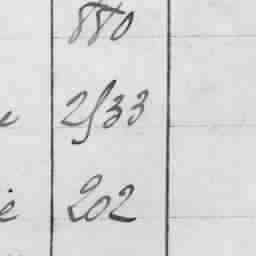 880
e 2533
e 202